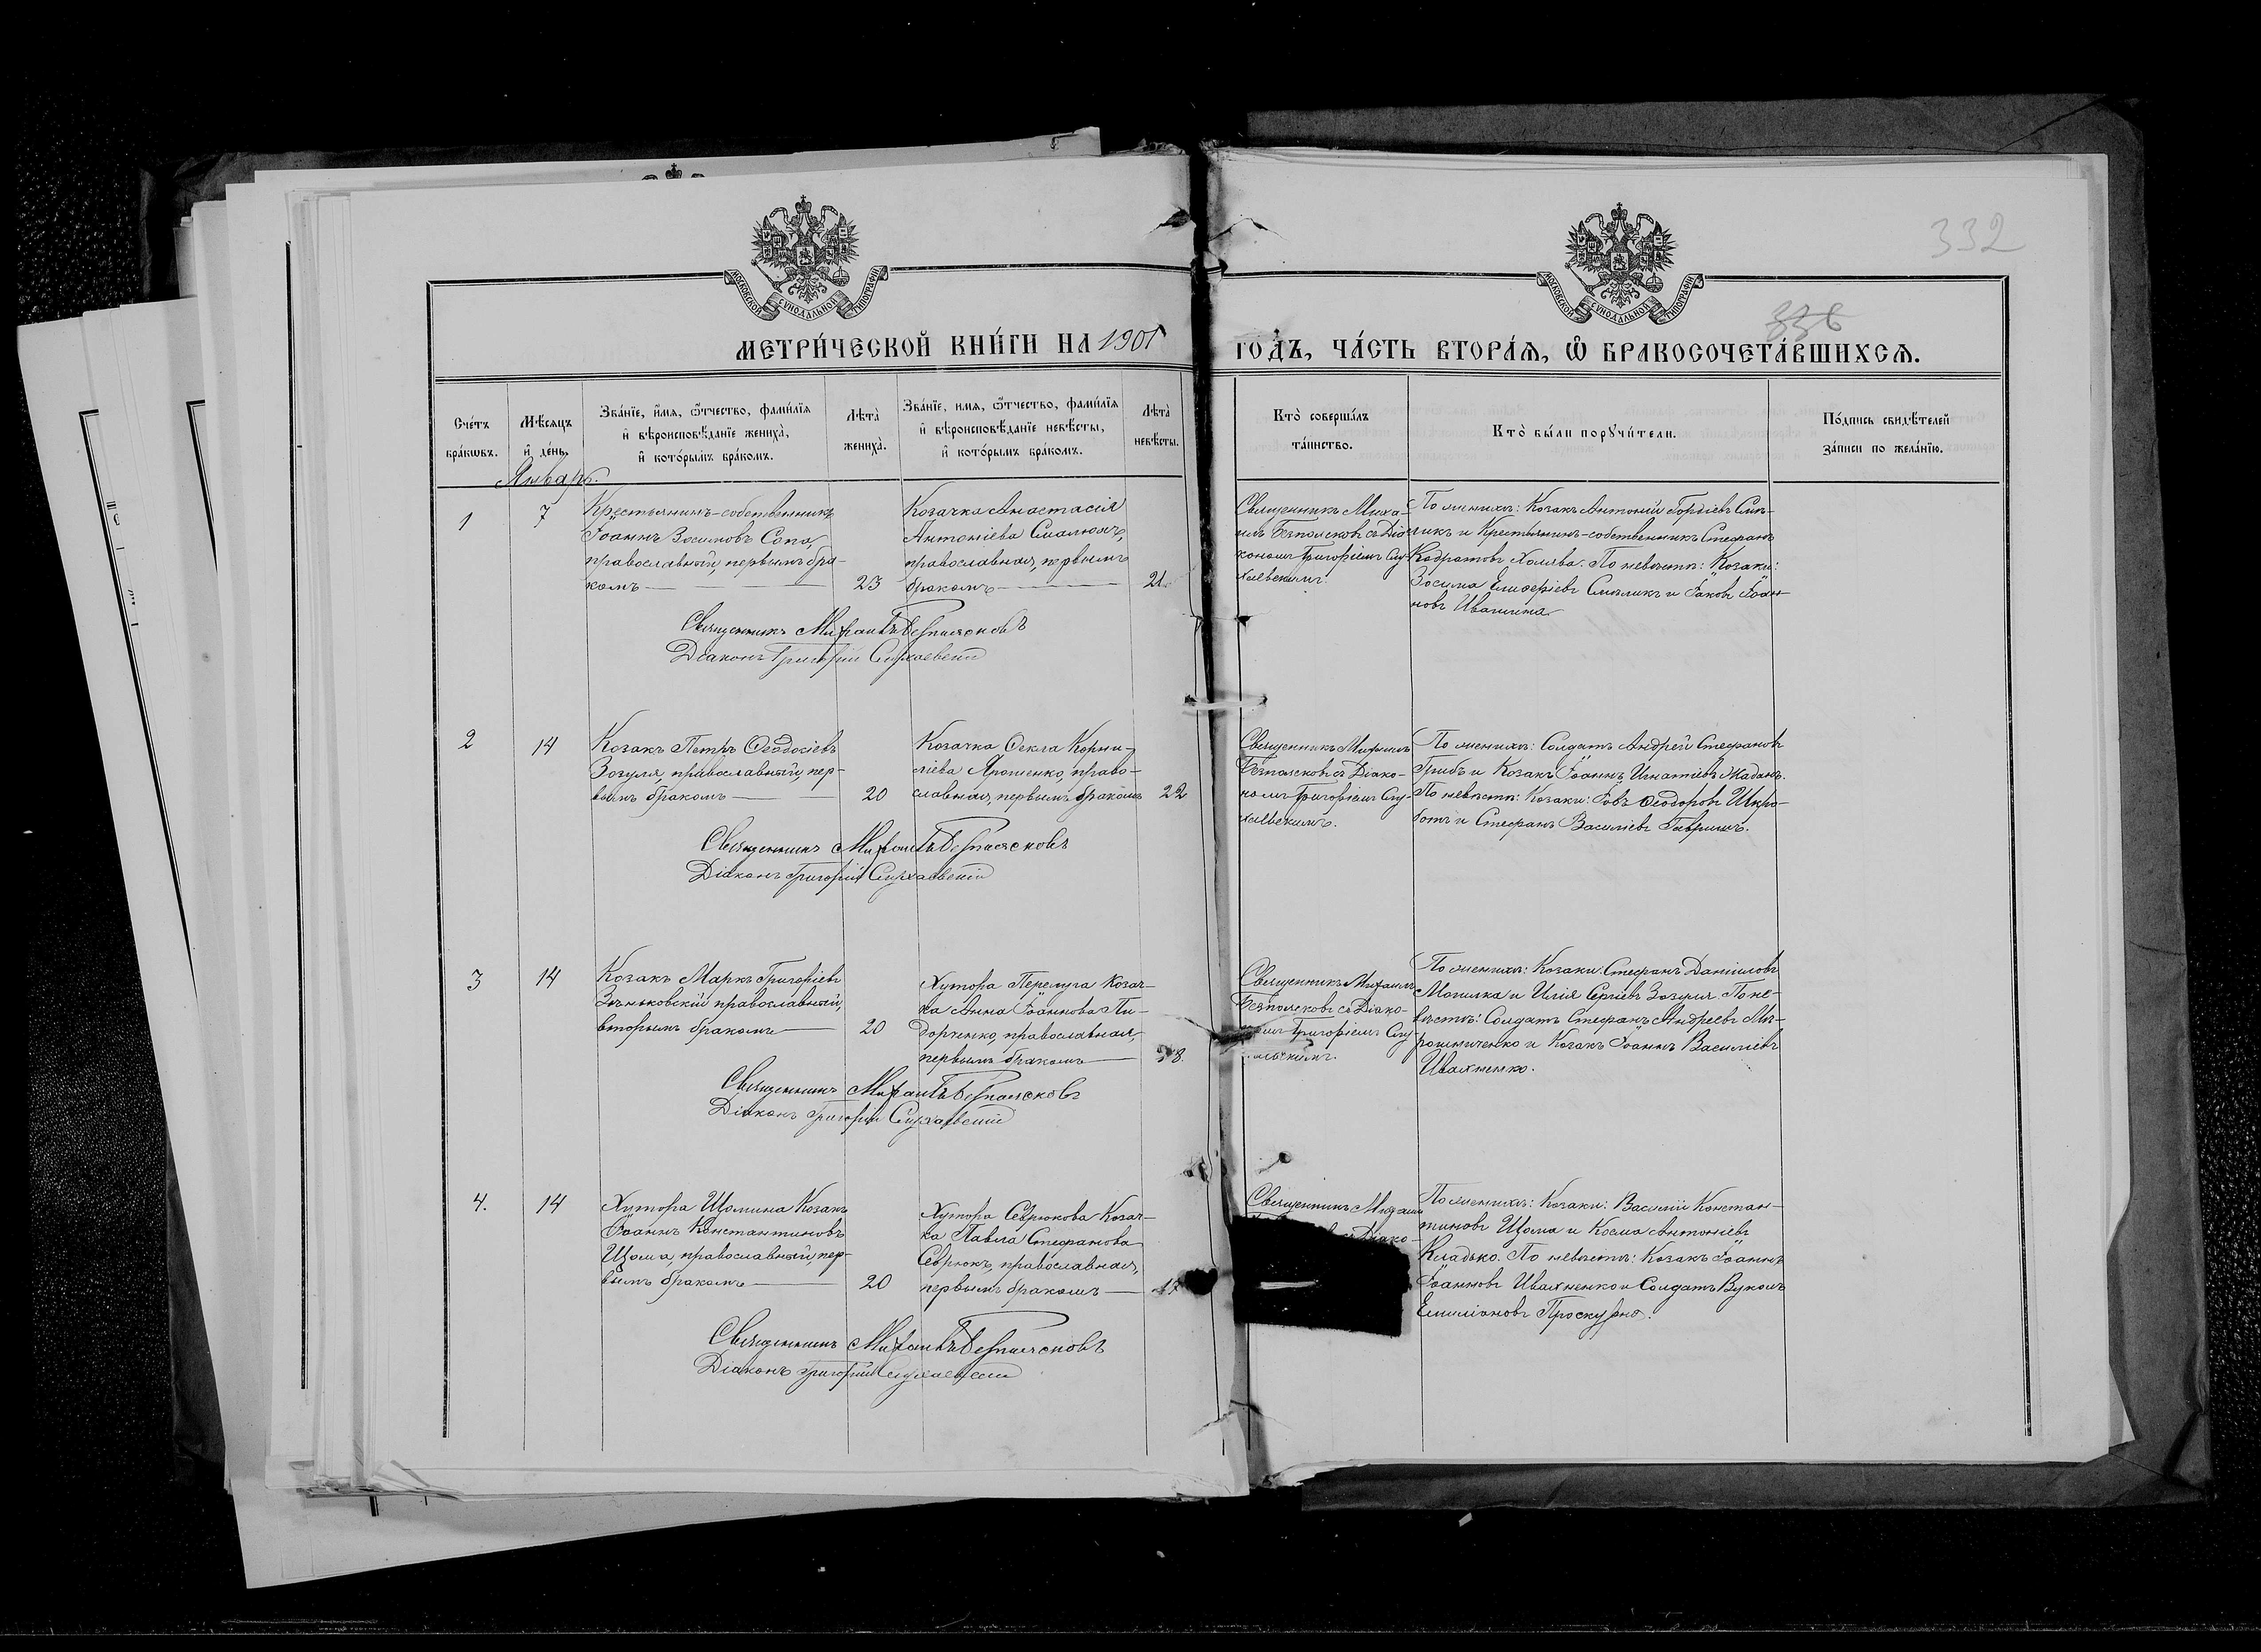 332
МОСКОВСКОЙ СУНОДАЛЬНОЙ ТИПОГРАФІИ
МОСКОВСКОЙ СУНОДАЛЬНОЙ ТИПОГРАФІИ
336
МЕТРИ́ЧЕСКОЙ КНИ́ГИ НА 1901
ГО́ДЪ, ЧА́СТЬ ВТОРА́Ѧ, Ѽ БРАКОСОЧЕТА́ВШИХСѦ.
Сче́тъ
бра́кѡвъ.
Мѣ́сяцъ
и де́нь.
Зва́нїе, и́мя, ѻ́тчество, фами́лїя
и вѣроисповѣ́данїе жениха̀,
и кото́рымъ бра́комъ.
Лѣта̀
жениха̀.
Зва́нїе, имя, ѻ́тчество, фами́лїя
и вѣроисповѣ́данїе невѣ́сты,
и кото́рымъ бра́комъ.
Лѣта̀
невѣ́сты.
Кто̀ соверша́лъ
та́инство.
Кто̀ бы́ли порꙋчи́тели.
По́дпись свидѣ́телей
за́писи по жела́нїю.
Январь.
1
7
Крестьянинъ-собственникъ
Іоаннъ Зосимовъ Сопа,
православный, первымъ бра-
комъ
23
Козачка Анастасія
Антоніева
православная, первымъ
бракомъ
21.
Священникъ Миха-
илъ Безпоясковъ съ Діа-
кономъ Григоріемъ Су-
хаевскимъ.
По женихѣ: Козакъ Антоній Гордіевъ Смя-
ликъ и Крестьянинъ-собственникъ Стефанъ
Кодратовъ Холява. По невѣстѣ: Козаки:
Зосима Елисеріевъ Смяликъ и Іаковъ Іоан-
новъ Ивашина
Священникъ Михаилъ Безпоясковъ
Діаконъ Григорій Сухаевскій
2
14
Козакъ Петръ Ѳеодосіевъ
Зозуля, православный, пер-
вымъ бракомъ
20
Козачка Ѳекла Корни-
ліева Ярошенко, право-
славная, первымъ бракомъ
22
Священникъ Михаилъ
Безпоясковъ съ Діако-
номъ Григоріемъ Су-
хаевскимъ.
По женихѣ: Солдатъ Андрей Стефановъ
Грибъ и Козакъ Іоаннъ Игнатіевъ Жаданъ.
По невѣстѣ: Козаки: Іовъ Ѳеодоровъ Шкро-
ботъ и Стефанъ Василіевъ Гавришъ.
Священникъ Михаилъ Безпоясковъ
Діаконъ Григорій Сухаевскій
3
14
Козакъ Маркъ Григоріевъ
Зѣньковскій православный,
вторымъ бракомъ
20
Хутора Перелуга Козач-
ка Анна Іоаннова Пи-
доренко, православная,
первымъ бракомъ
18.
Священникъ Михаилъ
Безпоясковъ съ Діако-
номъ Григоріемъ Су-
По женихѣ: Козаки: Стефанъ Даніиловъ
Могилка и Илія Сергіевъ Зозуля. По не-
вѣстѣ: Солдатъ Стефанъ Андреевъ Ми-
рошниченко и Козакъ Іоаннъ Василіевъ
Ивахненко.
Священникъ Михаилъ Безпоясковъ
Діаконъ Григорій Сухаевскій
4.
14
Хутора Щомина Козакъ
Іоаннъ Константиновъ
Щома, православный, пер-
вымъ бракомъ
20
Хутора Севрюкова Козач-
ка Павла Стефанова
Севрюкъ, православная,
первымъ бракомъ
17
Священникъ Михаилъ
Діако-
По женихѣ: Козаки: Василій Констан-
тиновъ Щома и Косма Антоніевъ
Кладько. По невѣстѣ: Козакъ Іоаннъ
Іоанновъ Ивахненко и Солдатъ Вуколъ
Емиліановъ Проскурня.
Священникъ Михаилъ Безпоясковъ
Діаконъ Григорій Сухаевскій